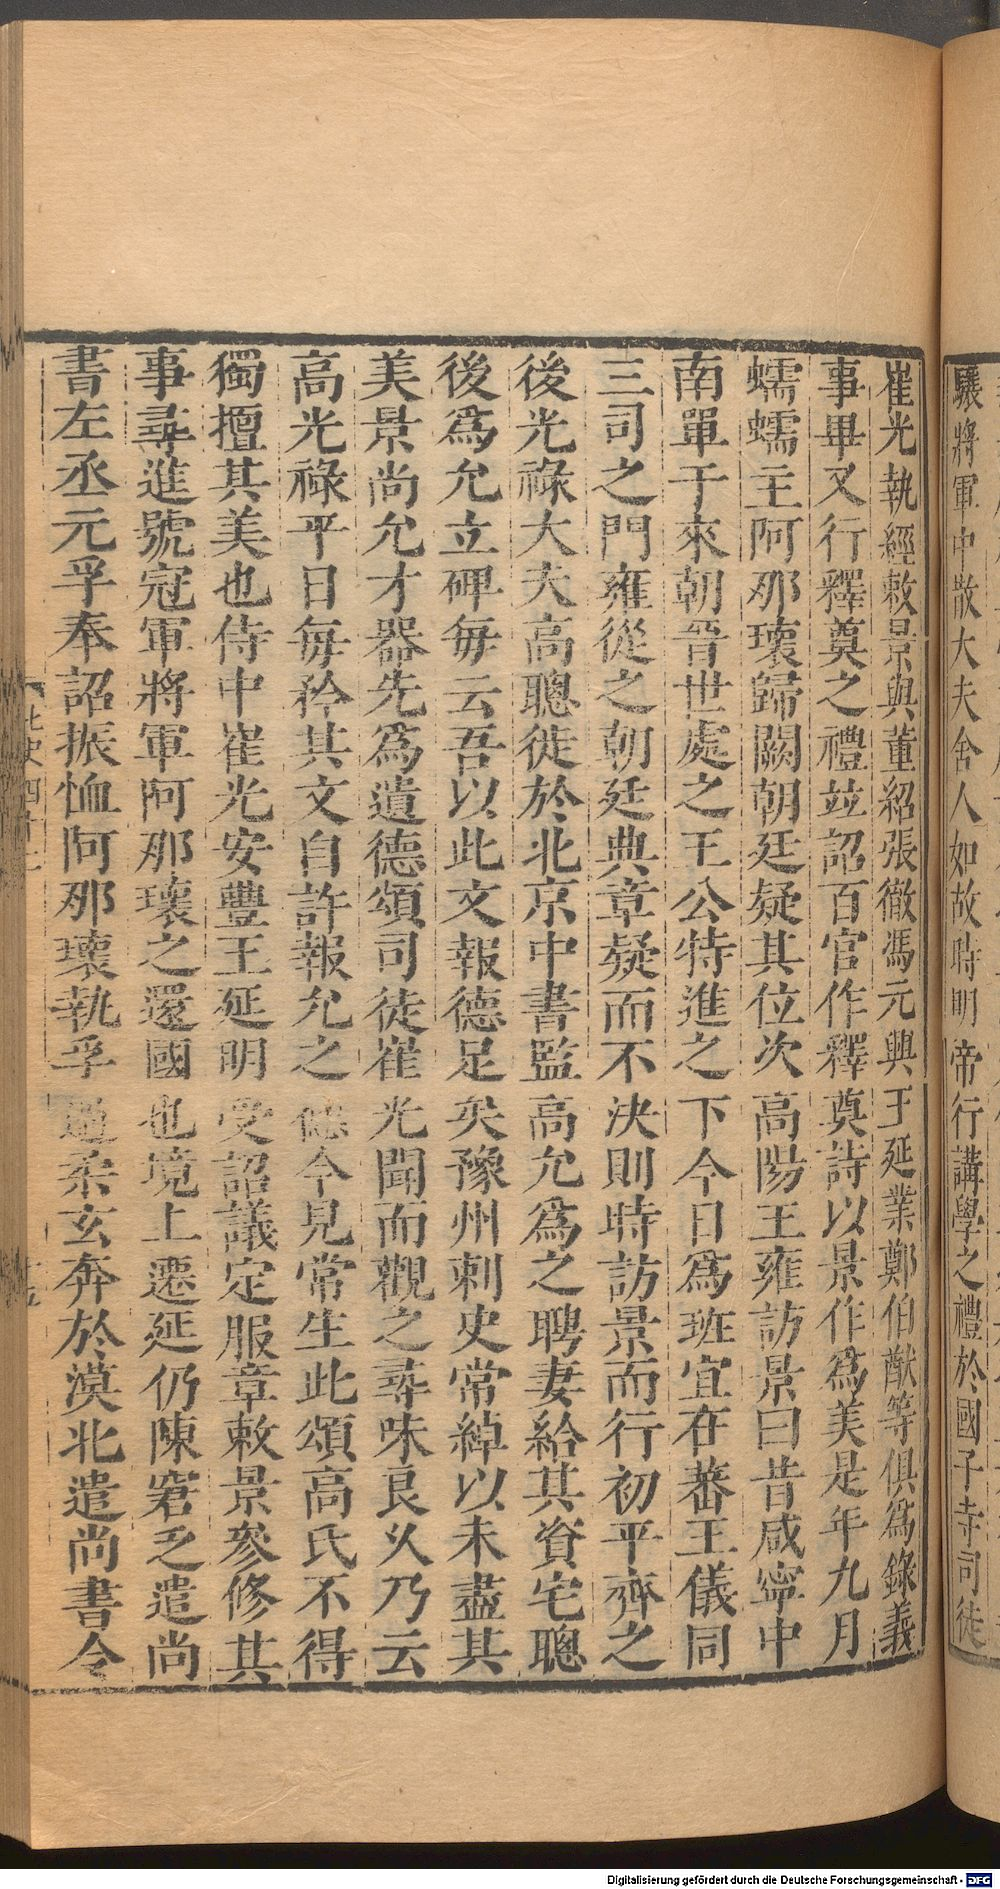 驤將軍中散大夫舍人如故時明帝行講學之禮於國子寺司徒
崔光執經敕景與董紹張徹馮元興王延業鄭伯猷等俱爲錄義
事畢又行釋奠之禮竝詔百官作釋奠詩以景作爲美是年九月
蠕蠕主阿那瓌歸闕朝廷疑其位次高陽王雍訪景曰昔咸寧中
南單于來朝晉世處之王公特進之下今日爲班宜在蕃王儀同
三司之門雍從之朝廷典章疑而不決則時訪景而行初平齊之
後光祿大夫高聰徙於北京中書監高允爲之聘妻給其資宅聰
後爲允立碑每云吾以此文報德足矣豫州刺史常綽以未盡其
美景尚允才器先爲遺德頌司徒崔光聞而觀之尋味良久乃云
高光祿平日每矜其文自許報允之德今見常生此頌高氏不得
獨擅其美也侍中崔光安豐王延明受詔議定服章敕景參修其
事尋進號冠軍將軍阿那瓌之還國也境上遷延仍陳窘乏遣尚
書左丞元孚奉詔振恤阿那瓌執孚過柔玄奔於漠北遣尚書令
北史四十二